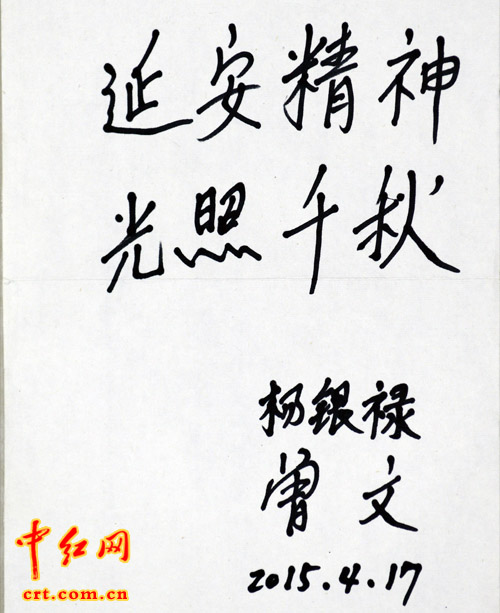 延安精神
光照千秋
杨银禄
曾文
2015.4.17
中红网
crt.com.cn